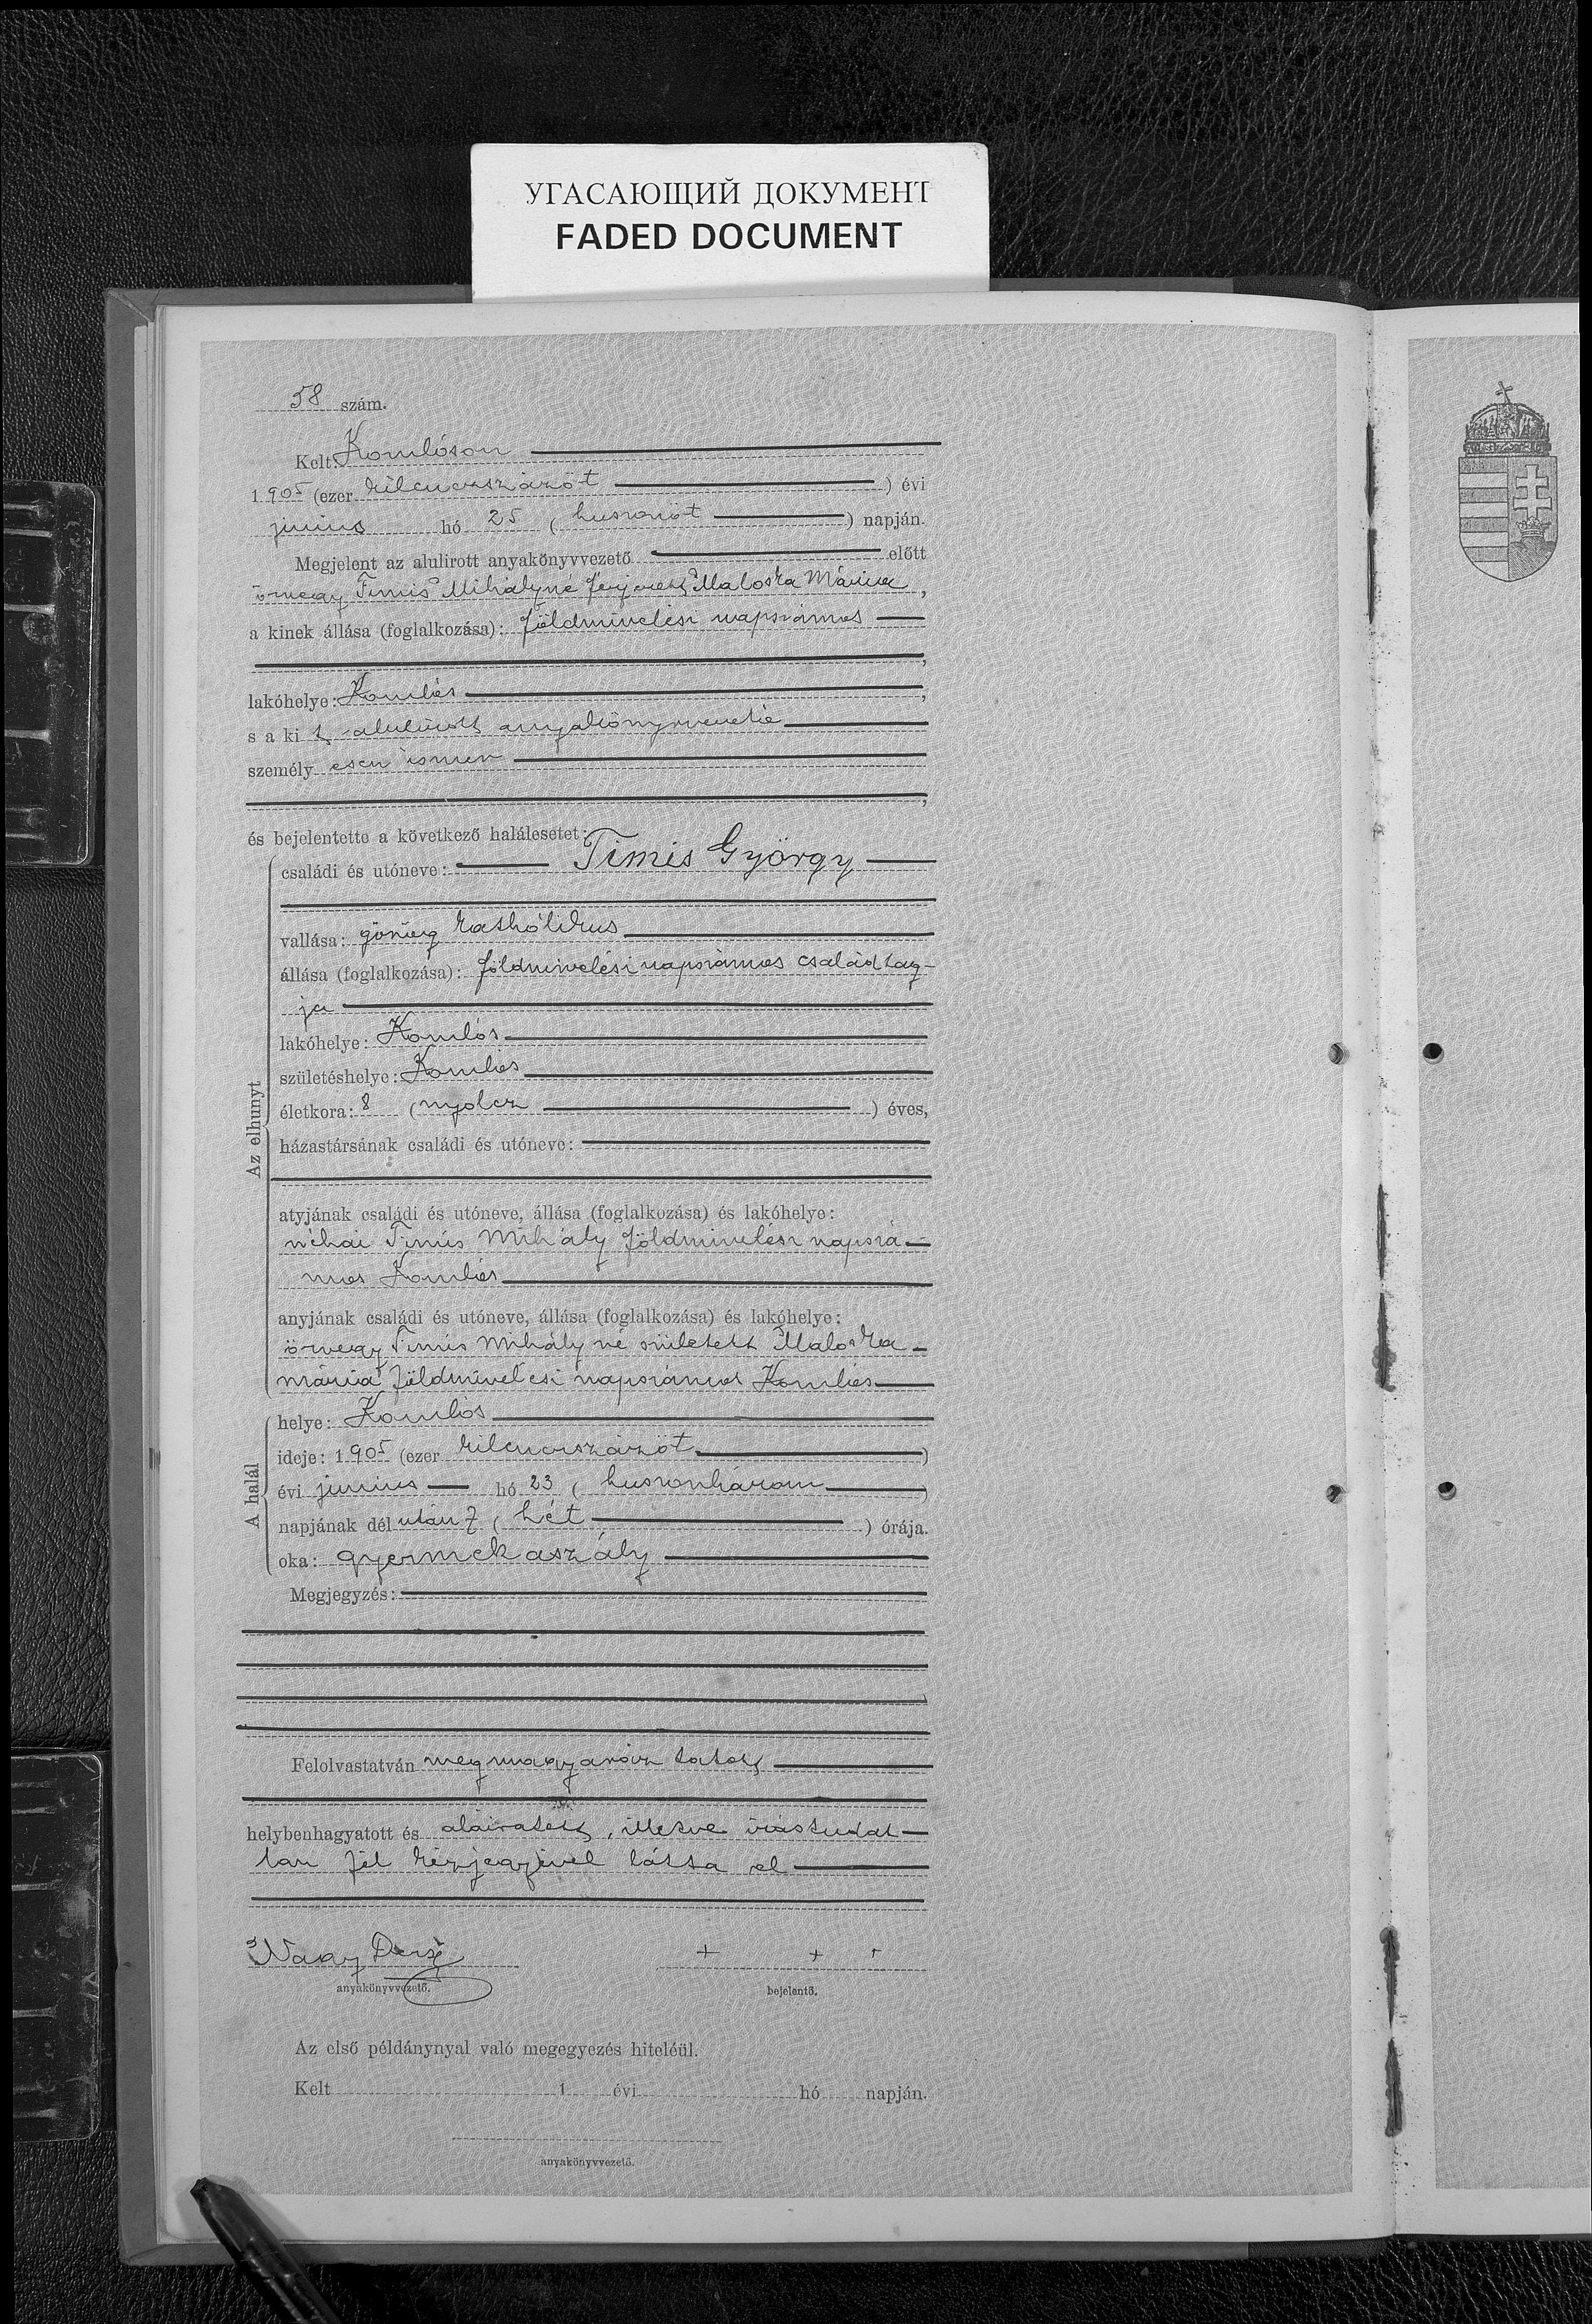 УГАСАЮЩИЙ ДОКУМЕНТ
FADED DOCUMENT
58 szám.
Kelt Komlóson
1905 (ezer kilenczszázöt) évi
junius hó 25 (huszonöt) napján.
Megjelent az alulirott anyakönyvvezető előtt
özvegy Timis Mihályné férjezett Maloska Mária,
a kinek állása (foglalkozása): földmivelési napszámos
,
lakóhelye: Komlós,
s a kit alulirott anyakönyvvezető
személyesen ismer
,
és bejelentette a következő halálesetet:
Az elhunyt
családi és utóneve: Timis György
vallása: görög katholikus
állása (foglalkozása): földmivelési napszámos családtag-
ja
lakóhelye: Komlós
születéshelye: Komlós
életkora: 8 (nyolcz) éves,
házastársának családi és utóneve:
atyjának családi és utóneve, állása (foglalkozása) és lakóhelye:
néhai Timis Mihály földmivelési napszá-
mos Komlós
anyjának családi és utóneve, állása (foglalkozása) és lakóhelye:
özvegy Timis Mihály né született Maloska
mária földmivelési napszámos Komlós
A halál
helye: Komlós
ideje: 1905 (ezer kilenczszázöt)
évi junius hó 23 (huszonhárom)
napjának délután 7 (hét) órája.
oka: gyermekaszály
Megjegyzés:
Felolvastatván megmagyaráztatott
helybenhagyatott és aláiratott, illetve irástudat-
lan fél kézjegyével látta el
Nagy
anyakönyvvezető.
+ + +
bejelentő.
Az első példánynyal való megegyezés hiteléül.
Kelt 1 évi hó napján.
anyakönyvvezető.